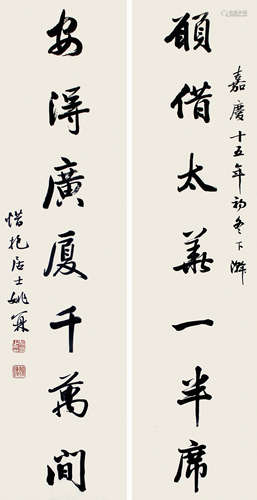 嘉慶十五年初冬下澣
願借太華一半席
安得廣廈千萬間
惜抱居士姚鼐